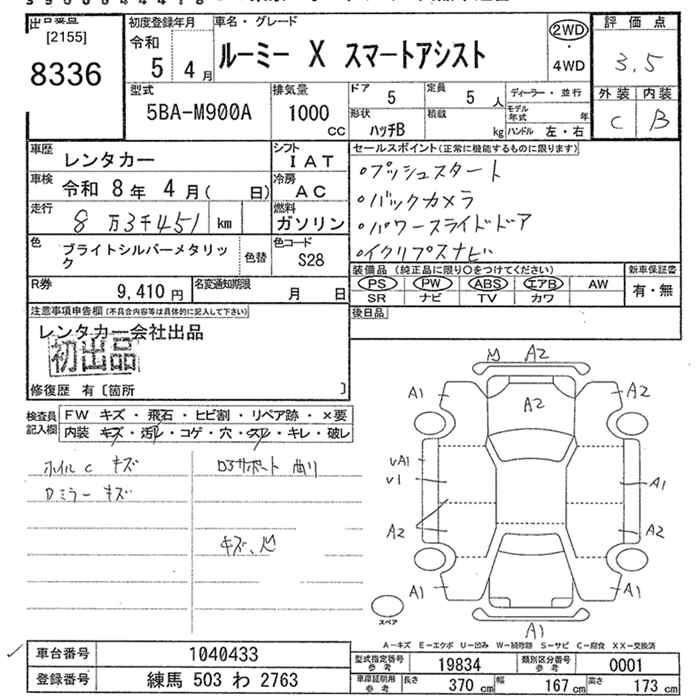 出品番
[2155]
8336
初度登録年月
令和
5 4月
車名・グレード
ルーミー X スマートアシスト
2WD
・
4WD
評価点
3.5
外装 内装
C B
型式
5BA-M900A
排気量
1000
cc
ドア 5
定員 5 人
形状 ハッチB
積載 kg
ディーラー・並行
モデル年式 年
ハンドル 左・右
車歴 レンタカー
シフト IAT
車検 令和 8 年 4 月( 日)
冷房 AC
走行 8 万3千451 km
燃料 ガソリン
色 ブライトシルバーメタリック
色替
色コード S28
R券 9,410 円
名変通知期限 月 日
セールスポイント(正常に機能するものに限ります)
・プッシュスタート
・バックカメラ
・パワースライドドア
・イクリプスナビ
装備品 (純正品に限り○をつけてください)
PS PW ABS エアB AW
SR ナビ TV カワ
新車保証書
有・無
後日品
注意事項申告欄(不具合内容等は具体的に記入して下さい)
レンタカー会社出品
初出品
修復歴 有〔箇所 〕
検査員記入欄
FW キズ・飛石・ヒビ割・リペア跡・×要
内装 キズ・汚レ・コゲ・穴・スレ・キレ・破レ
ホイルC キズ
Dミラー キズ
Dろサポート 曲り
キズ、凹
A2
A1
A2
A2
A1
UA1
U1
A1
A2
A2
A1
A1
A1
スペア
A-キズ E-エクボ U-凹み W-補修跡 S-サビ C-腐食 XX-交換済
車台番号 1040433
登録番号 練馬 503 わ 2763
型式指定番号 参考 19834
類別区分番号 参考 0001
車庫証明用 参考 長さ 370 cm 幅 167 cm 高さ 173 cm